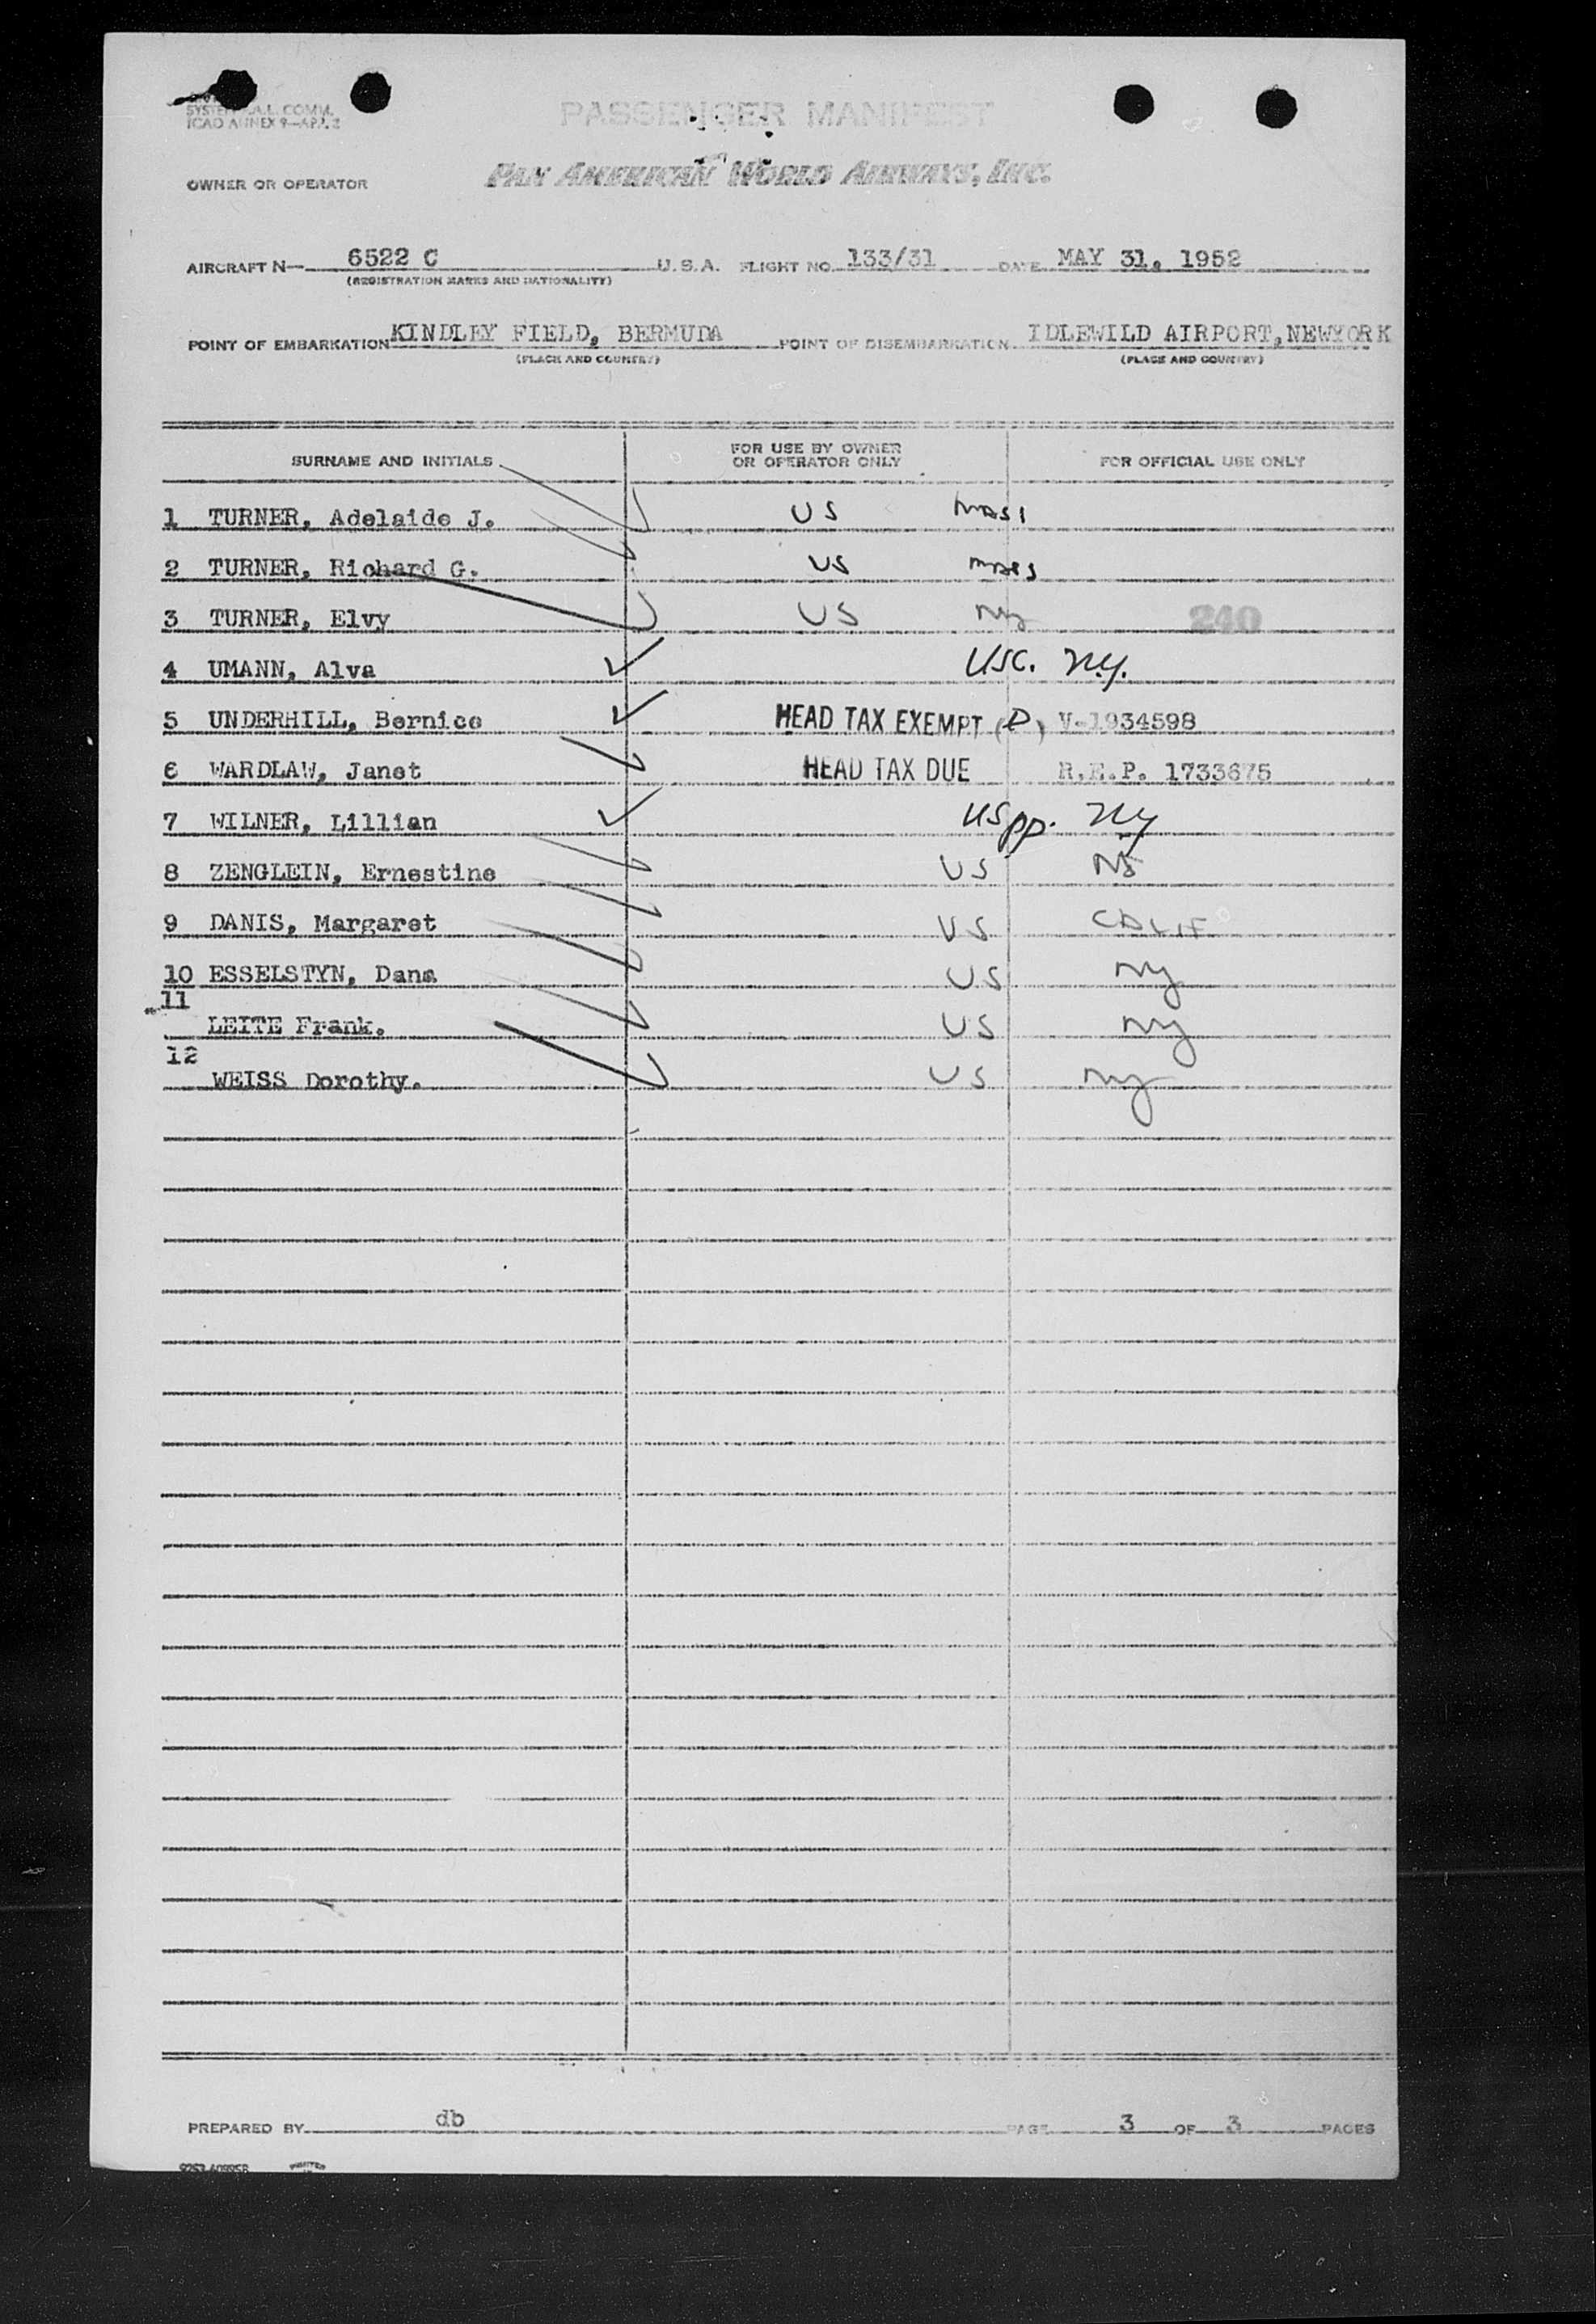 SYSTEM
COMM.
ICAO ANNEX 9—APP. 2
PASSENGER MANIFEST
OWNER OR OPERATOR PAN AMERICAN WORLD AIRWAYS, INC.
AIRCRAFT N— 6522 C U.S.A. FLIGHT NO. 133/31 DATE MAY 31, 1952
(REGISTRATION MARKS AND NATIONALITY)
POINT OF EMBARKATION KINDLEY FIELD, BERMUDA POINT OF DISEMBARKATION IDLEWILD AIRPORT, NEWYORK
(PLACE AND COUNTRY) (PLACE AND COUNTRY)
SURNAME AND INITIALS FOR USE BY OWNER OR OPERATOR ONLY FOR OFFICIAL USE ONLY
1 TURNER, Adelaide J. US mass
2 TURNER, Richard G. US mass
3 TURNER, Elvy US Ny 240
4 UMANN, Alva USC. Ny.
5 UNDERHILL, Bernice HEAD TAX EXEMPT (D) V-1934598
6 WARDLAW, Janet HEAD TAX DUE R.E.P. 1733675
7 WILNER, Lillian US pp. Ny
8 ZENGLEIN, Ernestine US NJ
9 DANIS, Margaret US CALIF
10 ESSELSTYN, Dana US Ny
11 LEITE Frank. US Ny
12 WEISS Dorothy. US Ny
PREPARED BY db PAGE 3 OF 3 PAGES